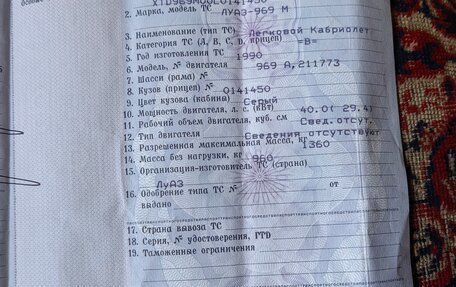 XTD969M00L0141450
2. Марка, модель ТС ЛУАЗ-969 М
3. Наименование (тип ТС) Легковой Кабриолет
4. Категория ТС (А, В, С, D, прицеп) =В=
5. Год изготовления ТС 1990
6. Модель, № двигателя 969 А,211773
7. Шасси (рама) №
8. Кузов (прицеп) № 0141450
9. Цвет кузова (кабины) Серый
10. Мощность двигателя, л. с. (кВт) 40.0( 29.4)
11. Рабочий объем двигателя, куб. см Свед.отсут.
12. Тип двигателя Сведения отсутствуют
13. Разрешенная максимальная масса, кг 1360
14. Масса без нагрузки, кг 960
15. Организация-изготовитель ТС (страна)
ЛуАЗ
16. Одобрение типа ТС № от
выдано
17. Страна вывоза ТС
18. Серия, № удостоверения, ГТD
19. Таможенные ограничения